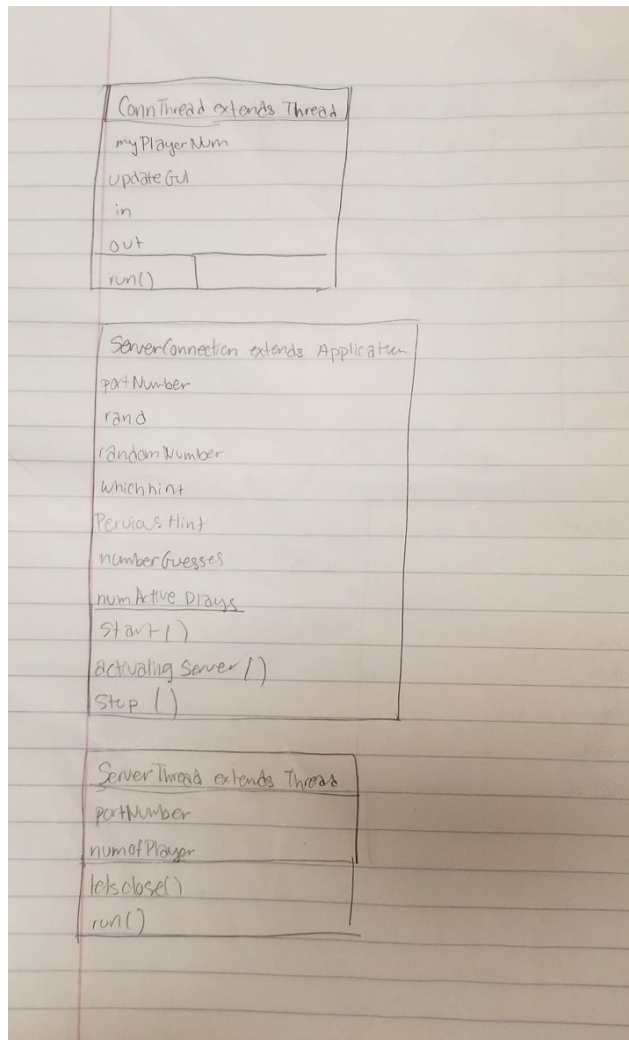 ConnThread extends Thread
myPlayerNum
updateGUI
in
out
run()
ServerConnection extends Application
portNumber
rand
randomNumber
whichhint
PerviasHint
numberGuesses
numActive Plays
Start()
activating Server()
Stop()
ServerThread extends Thread
portNumber
numofPlayer
letsclose()
run()